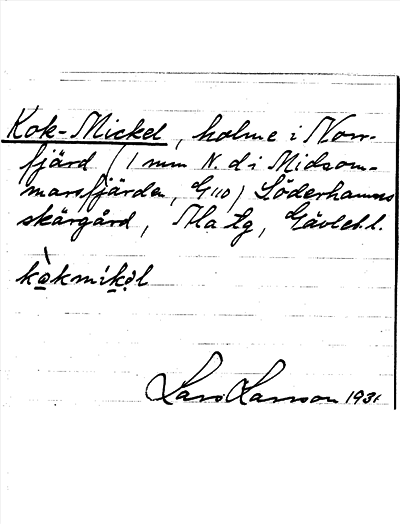 Kok-Mickel, holme i Norr-
fjärd (1 mm N. d i Midsom-
marsfjärden, G110) Söderhamns
skärgård, Ala tg, Gävleb. l.
Lars Larsson 1931